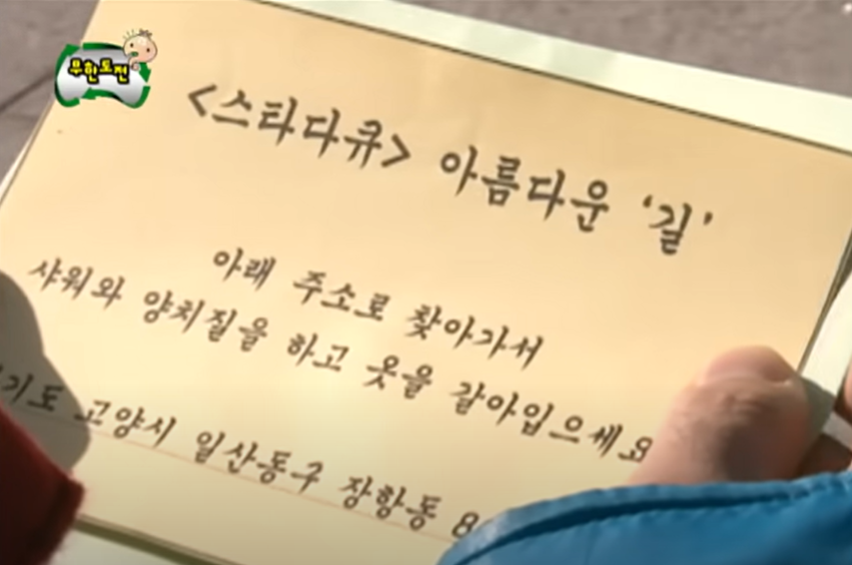 무한도전
<스타다큐> 아름다운 '길'
아래 주소로 찾아가서
샤워와 양치질을 하고 옷을 갈아입으세요
기도 고양시 일산동구 장항동 8